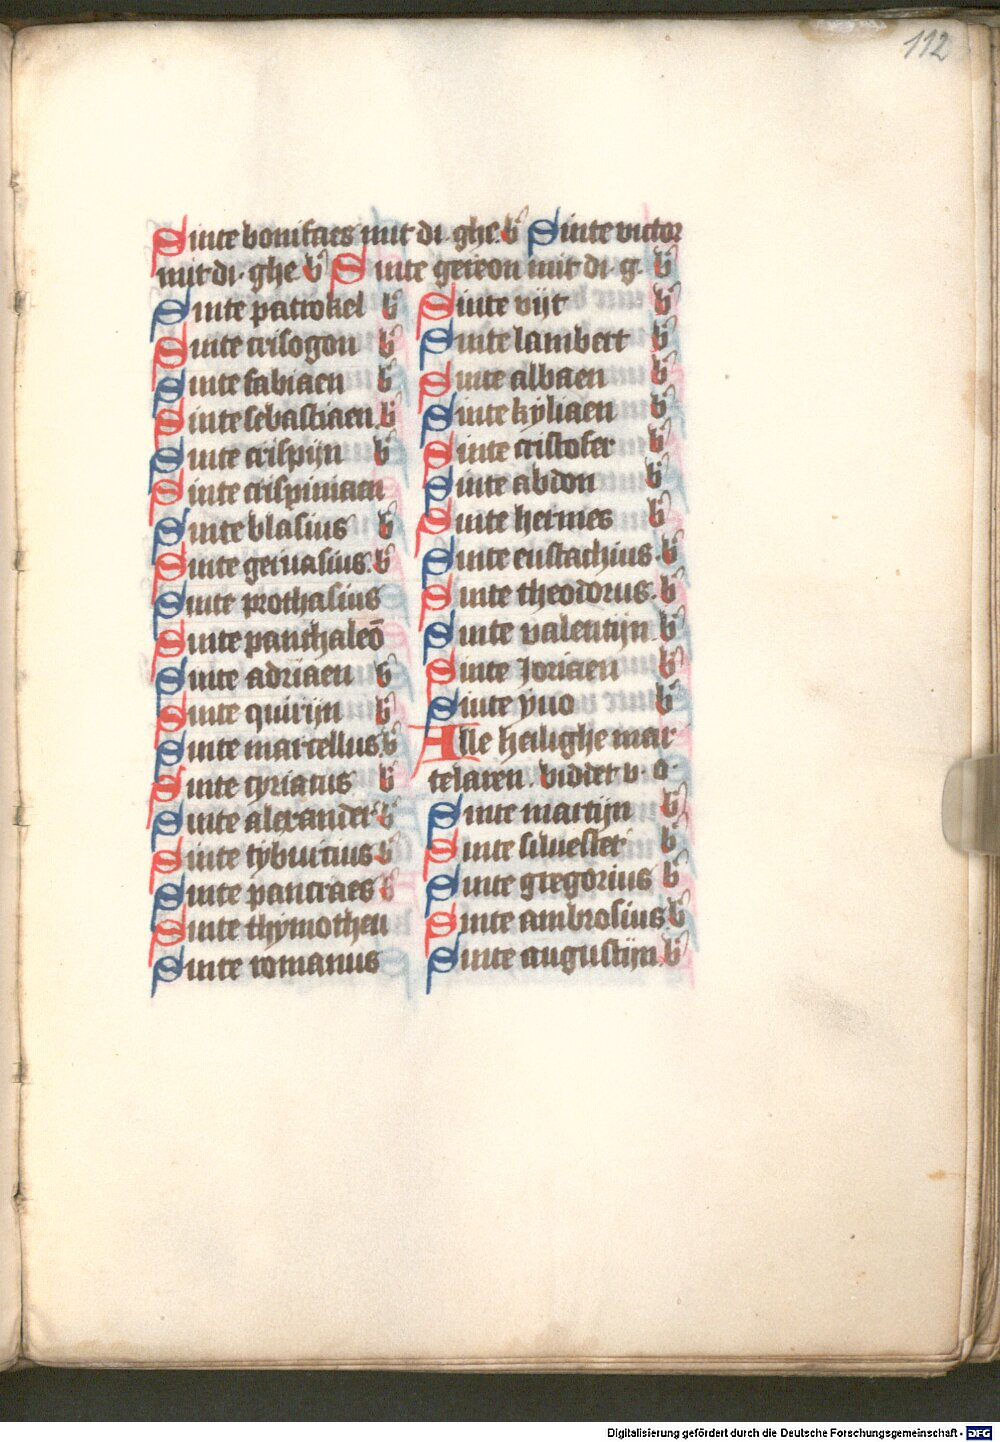 112
Sinte bonifaes mit di ghe. b Sinte victor
mit di. ghe b Sinte gereon mit di. g. b
Sinte patrokel b
Sinte crisogon b
Sinte fabiaen b
Sinte sebastiaen. b
Sinte crispijn b
Sinte crispiniaen
Sinte blasius b
Sinte geruasius. b
Sinte prothasius
Sinte panthaleō
Sinte adriaen b
Sinte quirijn b
Sinte marcellus. b
Sinte cyriacus b
Sinte alexander b
Sinte tyburcius b
Sinte pancraes b
Sinte thymotheu
Sinte romanus
Sinte vijt b
Sinte lambert b
Sinte albaen b
Sinte kyliaen b
Sinte cristofer b
Sinte abdon b
Sinte hermes b
Sinte eustachius. b
Sinte theodorus. b
Sinte valentijn b
Sinte Joriaen b
Sinte yuo b
Alle heilighe mar
telaren. biddet v. o.
Sinte martijn b
Sinte siluester b
Sinte gregorius b
Sinte ambrosius b
Sinte augustijn. b
Digitalisierung gefördert durch die Deutsche Forschungsgemeinschaft - DFG